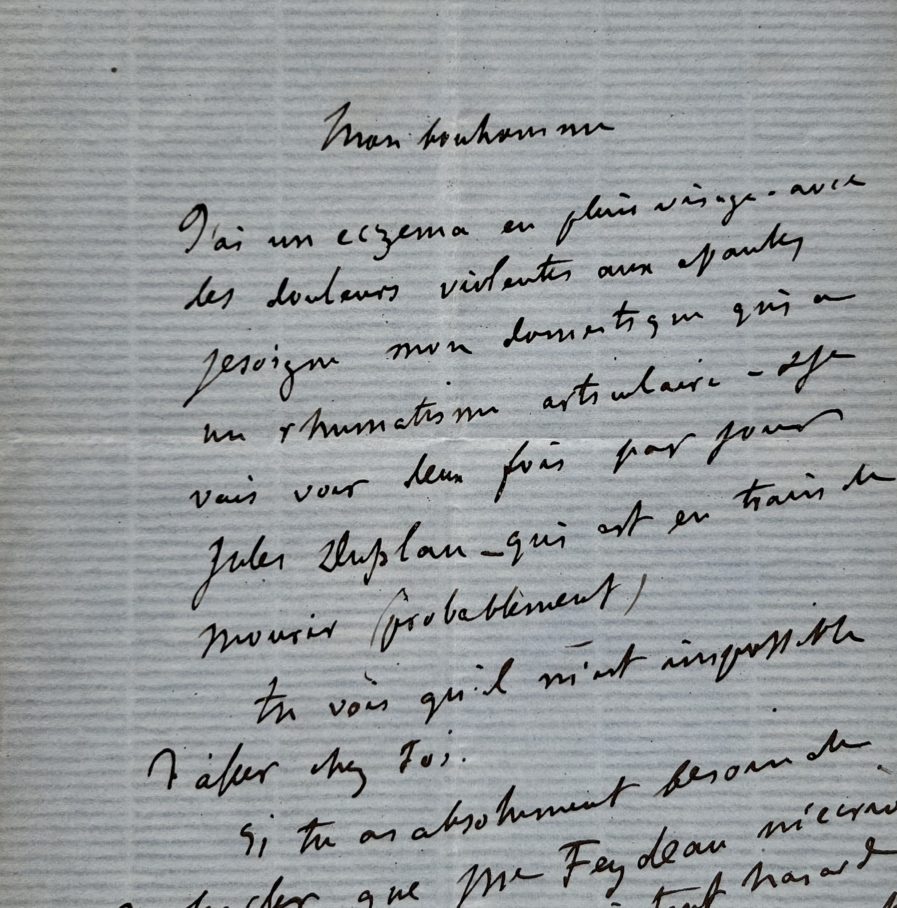 Mon bonhomme
J'ai un eczema en plein visage - avec
des douleurs violentes aux epaules
je soigne mon domestique qui a
un rhumatisme articulaire - & je
vais voir deux fois par jour
Jules Duplan - qui est en train de
mourir (probablement)
tu vois qu'il m'est impossible
d'aller chez Toi.
Si tu as absolument besoin de
que Me Feydeau m'ecrive
tout hasard